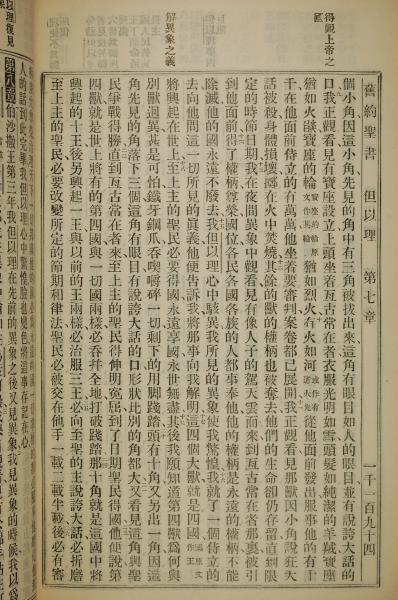 舊約聖書 但以理 第七章 一千一百九十四
得觀上帝之國
個小角因這小角先見的角中有三角被拔出來這角有眼目如人的眼目並有說誇大話的
口我正觀看見有寶座設立上頭坐着亙古常在者衣服光明如雪頭髮如純潔的羊羢寶座
猶如火燄寶座的輪寶座的輪原文作其輪猶如烈火有火如河從他面前發出服事他的有千
千在他面前侍立的有萬萬他坐着要審判案卷都已展開我正觀看見那獸因小角說狂大
話被殺身體損壞擲在火中焚燒其餘的獸的權柄也被奪去他們的生命卻仍存留直到限
定的時節日期我在夜間異象中觀看見有像人子的駕天雲而來到亙古常在者那裏被引
到他面前得了權柄尊榮國位各民各國各族的人都事奉他他的權柄是永遠的權柄不能
除滅他的國永遠不廢去我但以理心中駭異我所見的異象使我驚惶我就了一個侍立的
解異象之義
去向他問這一切所見的眞義他便告訴我將那事向我解明這四個大獸就是四國國原文作王
將興起在世上至上主的聖民必要得國永遠享國永世無盡其後我願知道第四獸爲何與
別獸迥異甚是可怕鐵牙銅爪吞喫嚼碎一切剩下的用脚踐踏頭有十角又另出一角因這
角先見的角落下三個這角有眼目有說誇大話的口形狀比別的角都大又看見這角與聖
民爭戰得勝直到亙古常在者來至上主的聖民得伸明寃屈到了日期聖民得國他便說第
四獸就是世上將有的第四國與一切國兩樣必吞幷全地打破踐踏那十角就是這國中將
興起的十王後另興起一王與以前的王兩樣必治服三王必向至聖的主說誇大話必折磨
至上主的聖民必要改變所定的節期和律法聖民必被交在他手一載二載半載後必有審
人的話到此完畢我但以理心中驚惶臉也變色將這事存記在心
以理復見
第八章伯沙撒王第三年我但以理在先前的異象之後又見異象我見異象的時候我以爲